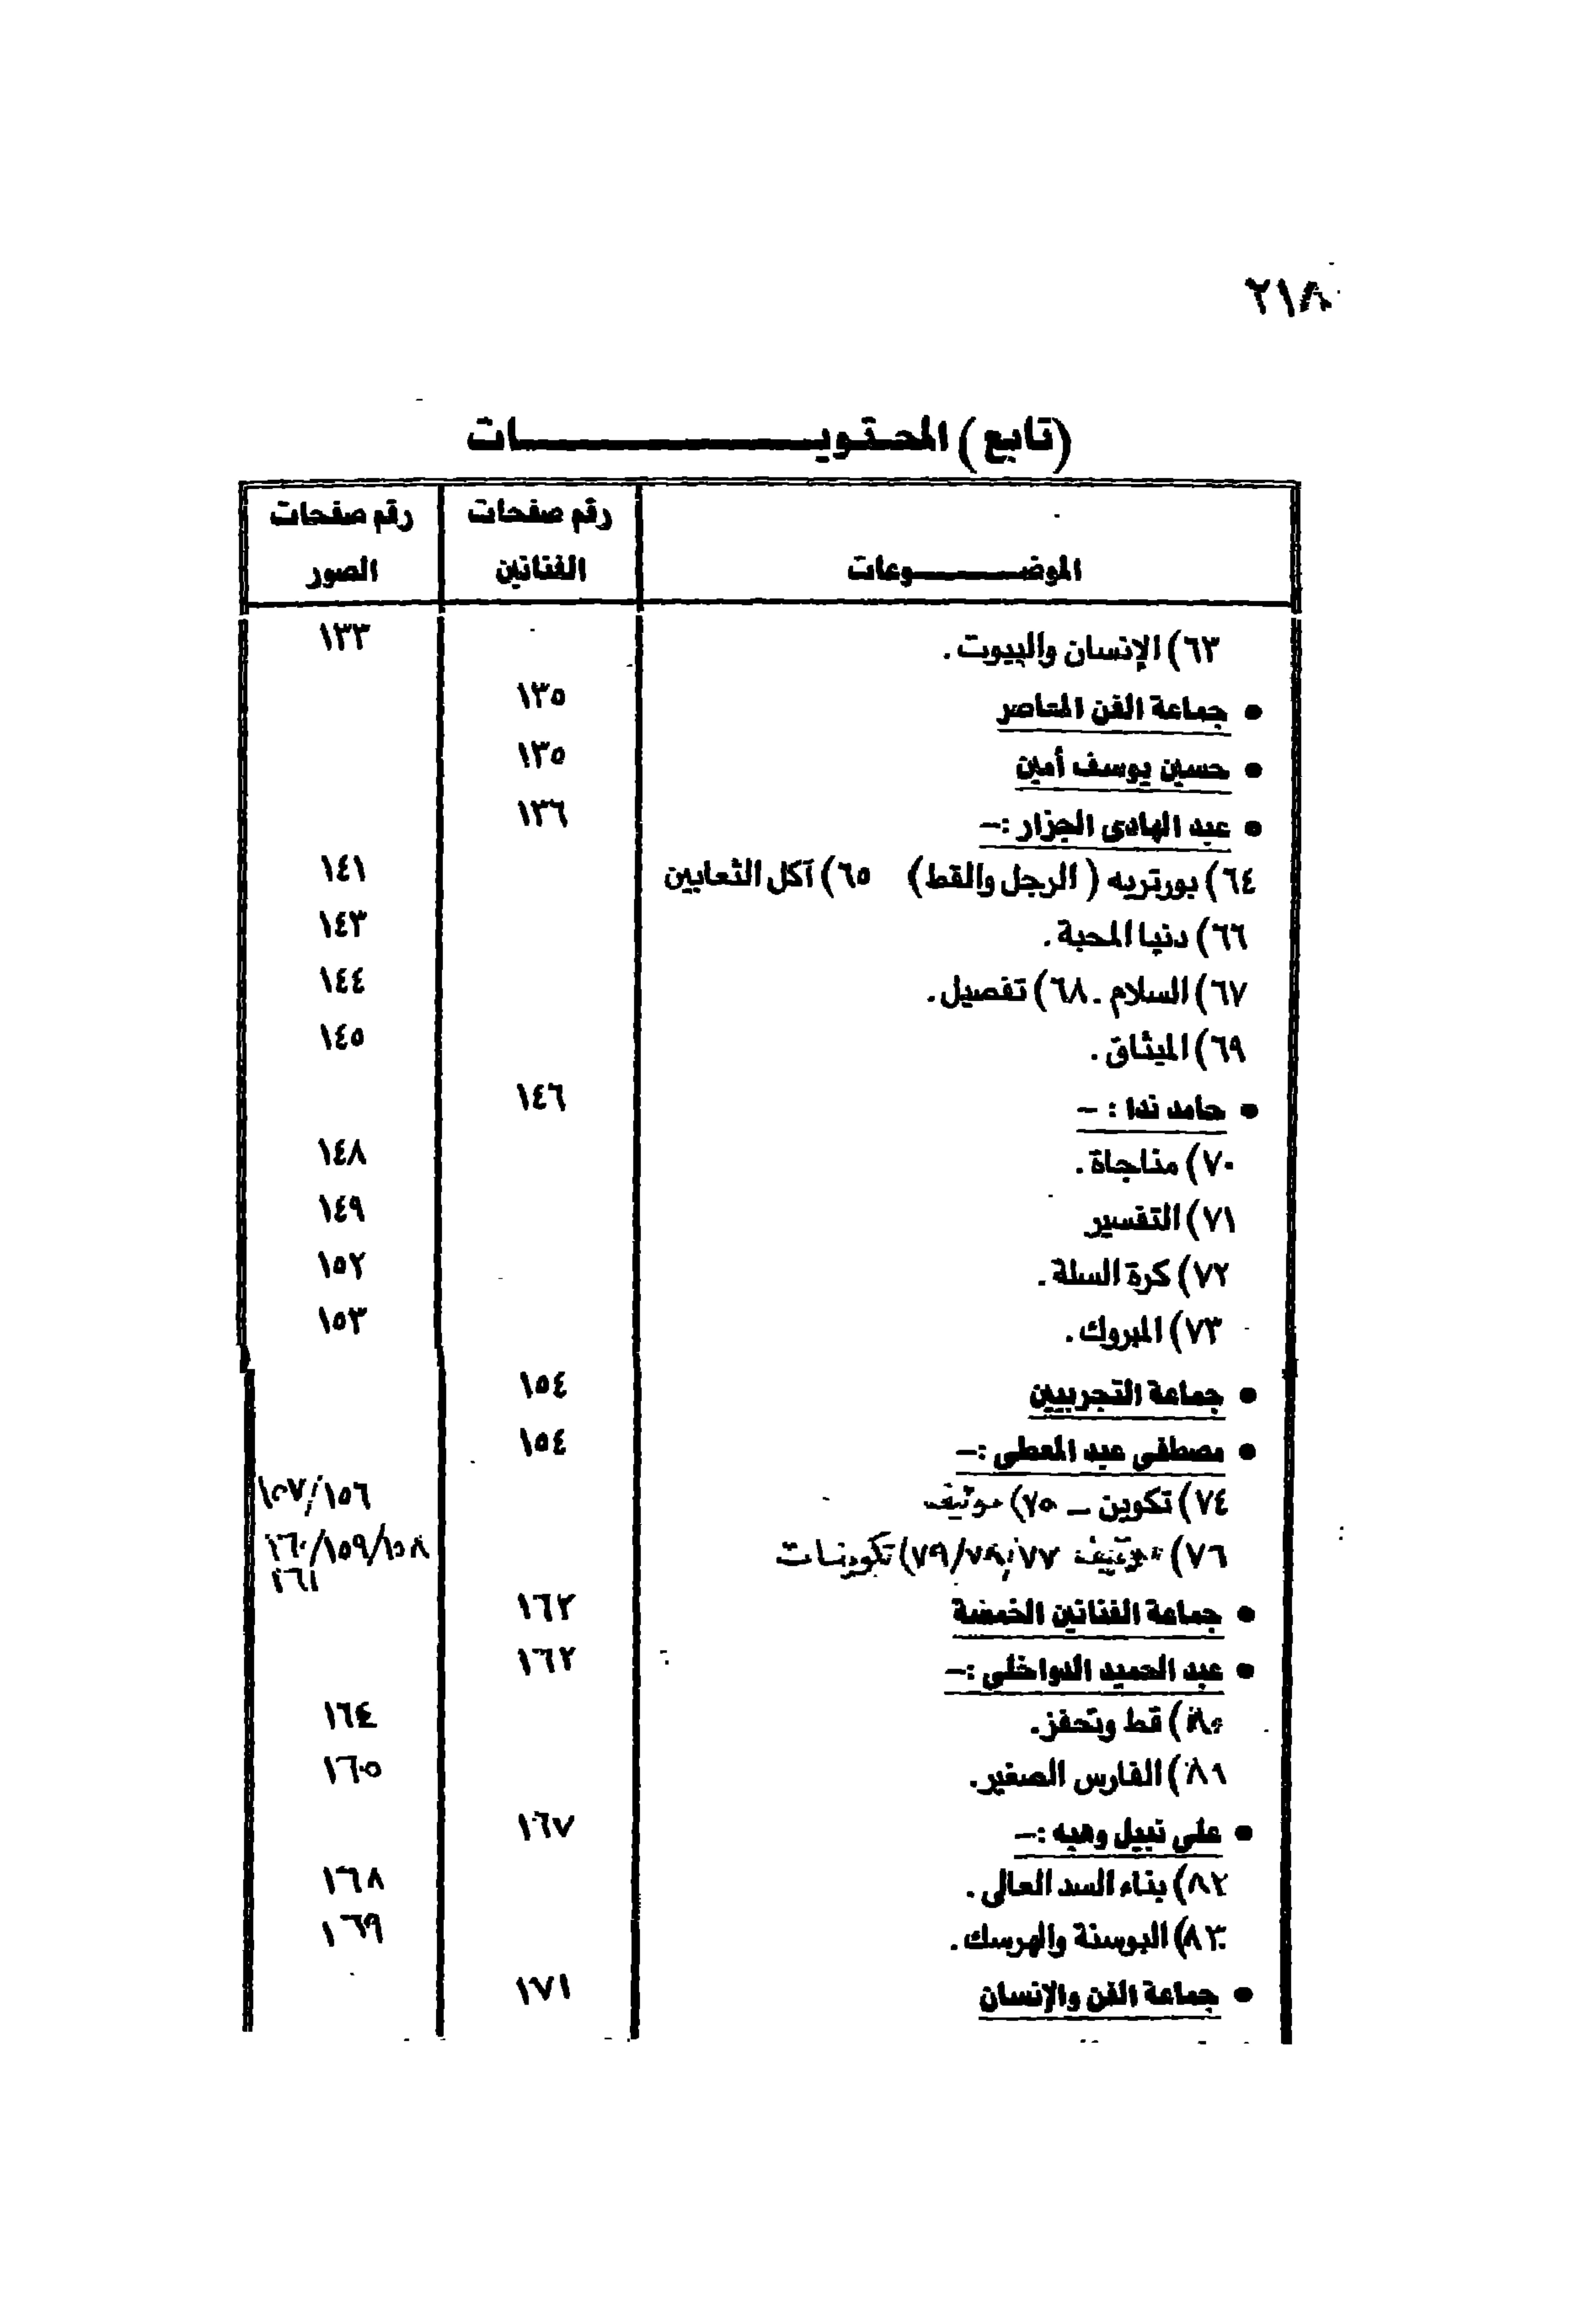 ٢١٨
(تابع) المحتويات
الموضوعات رقم صفحات الفنانين رقم صفحات الصور
٦٣) الإنسان والبيوت . ١٣٣
• جماعة الفن المتاصر ١٣٥
• حسين يوسف أمين ١٣٥
• عبد الهادى الجزار :– ١٣٦
٦٤) بورتريه ( الرجل والقط) ٦٥) آكل الثعابين ١٤١
٦٦) دنيا المحبة . ١٤٣
٦٧) السلام . ٦٨) تفصيل . ١٤٤
٦٩) الميثاق . ١٤٥
• حامد ندا : – ١٤٦
٧٠) مناجاة . ١٤٨
٧١) التفسير ١٤٩
٧٢) كرة السلة . ١٥٢
٧٣) المبروك . ١٥٣
• جماعة التجربيين ١٥٤
• مصطفى عبد المعطى :– ١٥٤
٧٤) تكوين – ٧٥) موتيف ١٥٦/١٥٧
٧٦) موتيف ٧٧/٧٨/٧٩) تكوينات ١٥٨/١٥٩/١٦٠
١٦١
• جماعة الفنانين الخمسة ١٦٢
• عبد الحميد الدواخلى :– ١٦٢
٨٠) قط وتحفز. ١٦٤
٨١) الفارس الصغير. ١٦٥
• على نبيل وهبه :– ١٦٧
٨٢) بناء السد العالى . ١٦٨
٨٣) البوسنة والهرسك . ١٦٩
• جماعة الفن والإنسان ١٧١